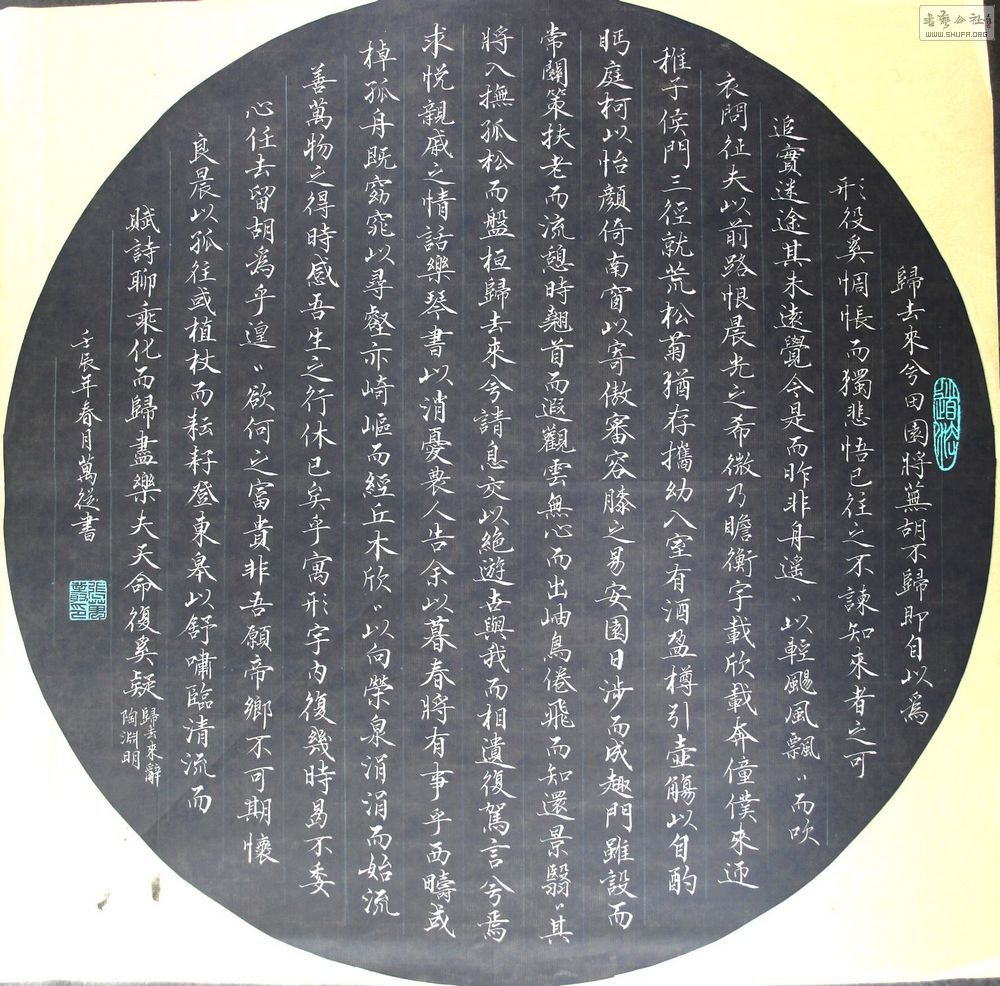 歸去來兮田園將蕪胡不歸即自以爲
形役奚惆悵而獨悲悟已往之不諫知來者之可
追實迷途其未遠覺今是而昨非舟遥〻以輕颺風飄〻而吹
衣問征夫以前路恨晨光之希微乃瞻衡宇載欣載奔僮僕來迎
稚子候門三徑就荒松菊猶存攜幼入室有酒盈樽引壺觴以自酌
眄庭柯以怡顔倚南窗以寄傲審容膝之易安園日涉而成趣門雖設而
常關策扶老而流憩時翹首而遐觀雲無心而出岫鳥倦飛而知還景翳〻其
將入撫孤松而盤桓歸去來兮請息交以絶遊世與我而相遺復駕言兮焉
求悦親戚之情話樂琴書以消憂農人告余以暮春將有事乎西疇或
棹孤舟既窈窕以尋壑亦崎嶇而經丘木欣〻以向榮泉涓涓而始流
善萬物之得時感吾生之行休已矣乎寓形宇内復幾時曷不委
心任去留胡爲乎遑〻欲何之富貴非吾願帝鄉不可期懷
良晨以孤往或植杖而耘耔登東皋以舒嘯臨清流而
賦詩聊乘化而歸盡樂夫天命復奚疑
歸去來辭
陶淵明
壬辰年春月萬從書
WWW.SHUFA.ORG